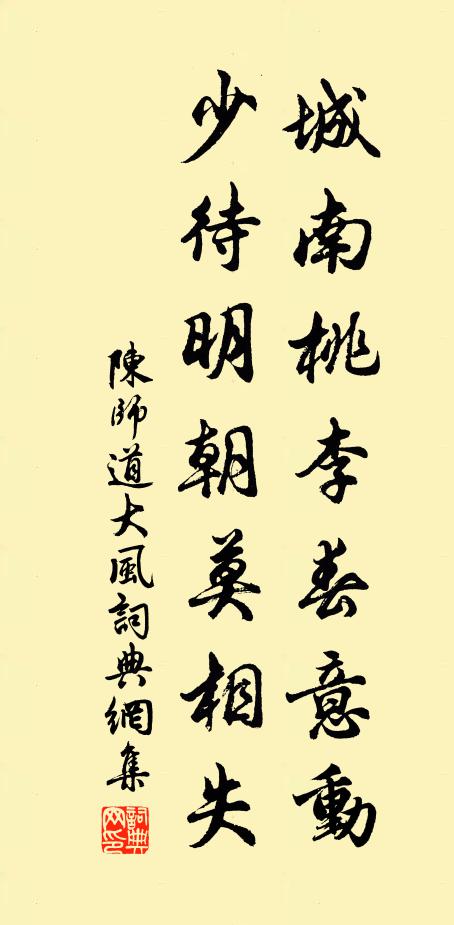 城南桃李春意動
少待明朝莫相失
陳師道大風詞典網集
詞典网印